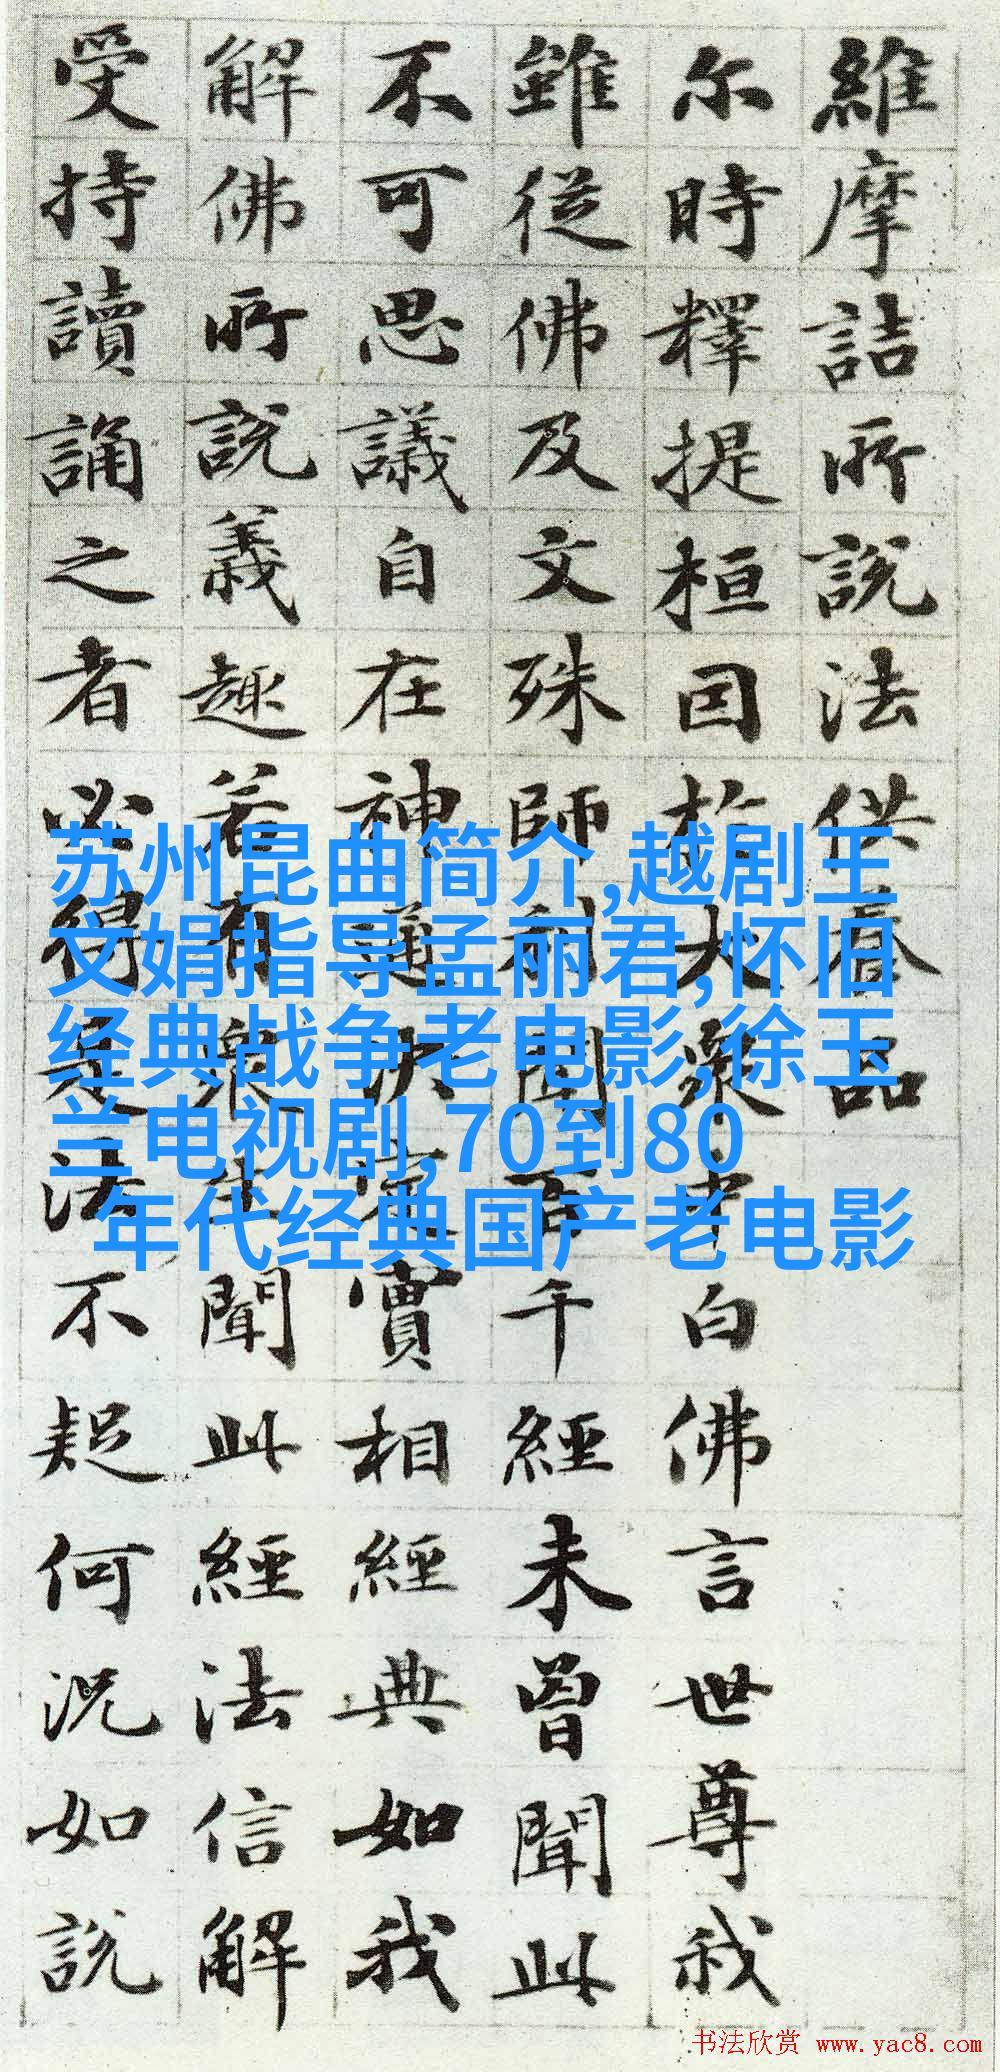 維摩詰所説法供養品
尔時釋提桓因於大衆中白佛言世尊我
雖從佛及文殊師利聞百千經未曾聞此
不可思議自在神通決定實相經典如我
解佛所説義趣若有衆生聞此經法信解
受持讀誦之者必得是法不疑何況如説
苏州昆曲简介,越剧王
文娟指导孟丽君,怀旧
经典战争老电影,徐玉
兰电视剧,70到80
年代经典国产老电影
书法欣赏 www.yac8.com